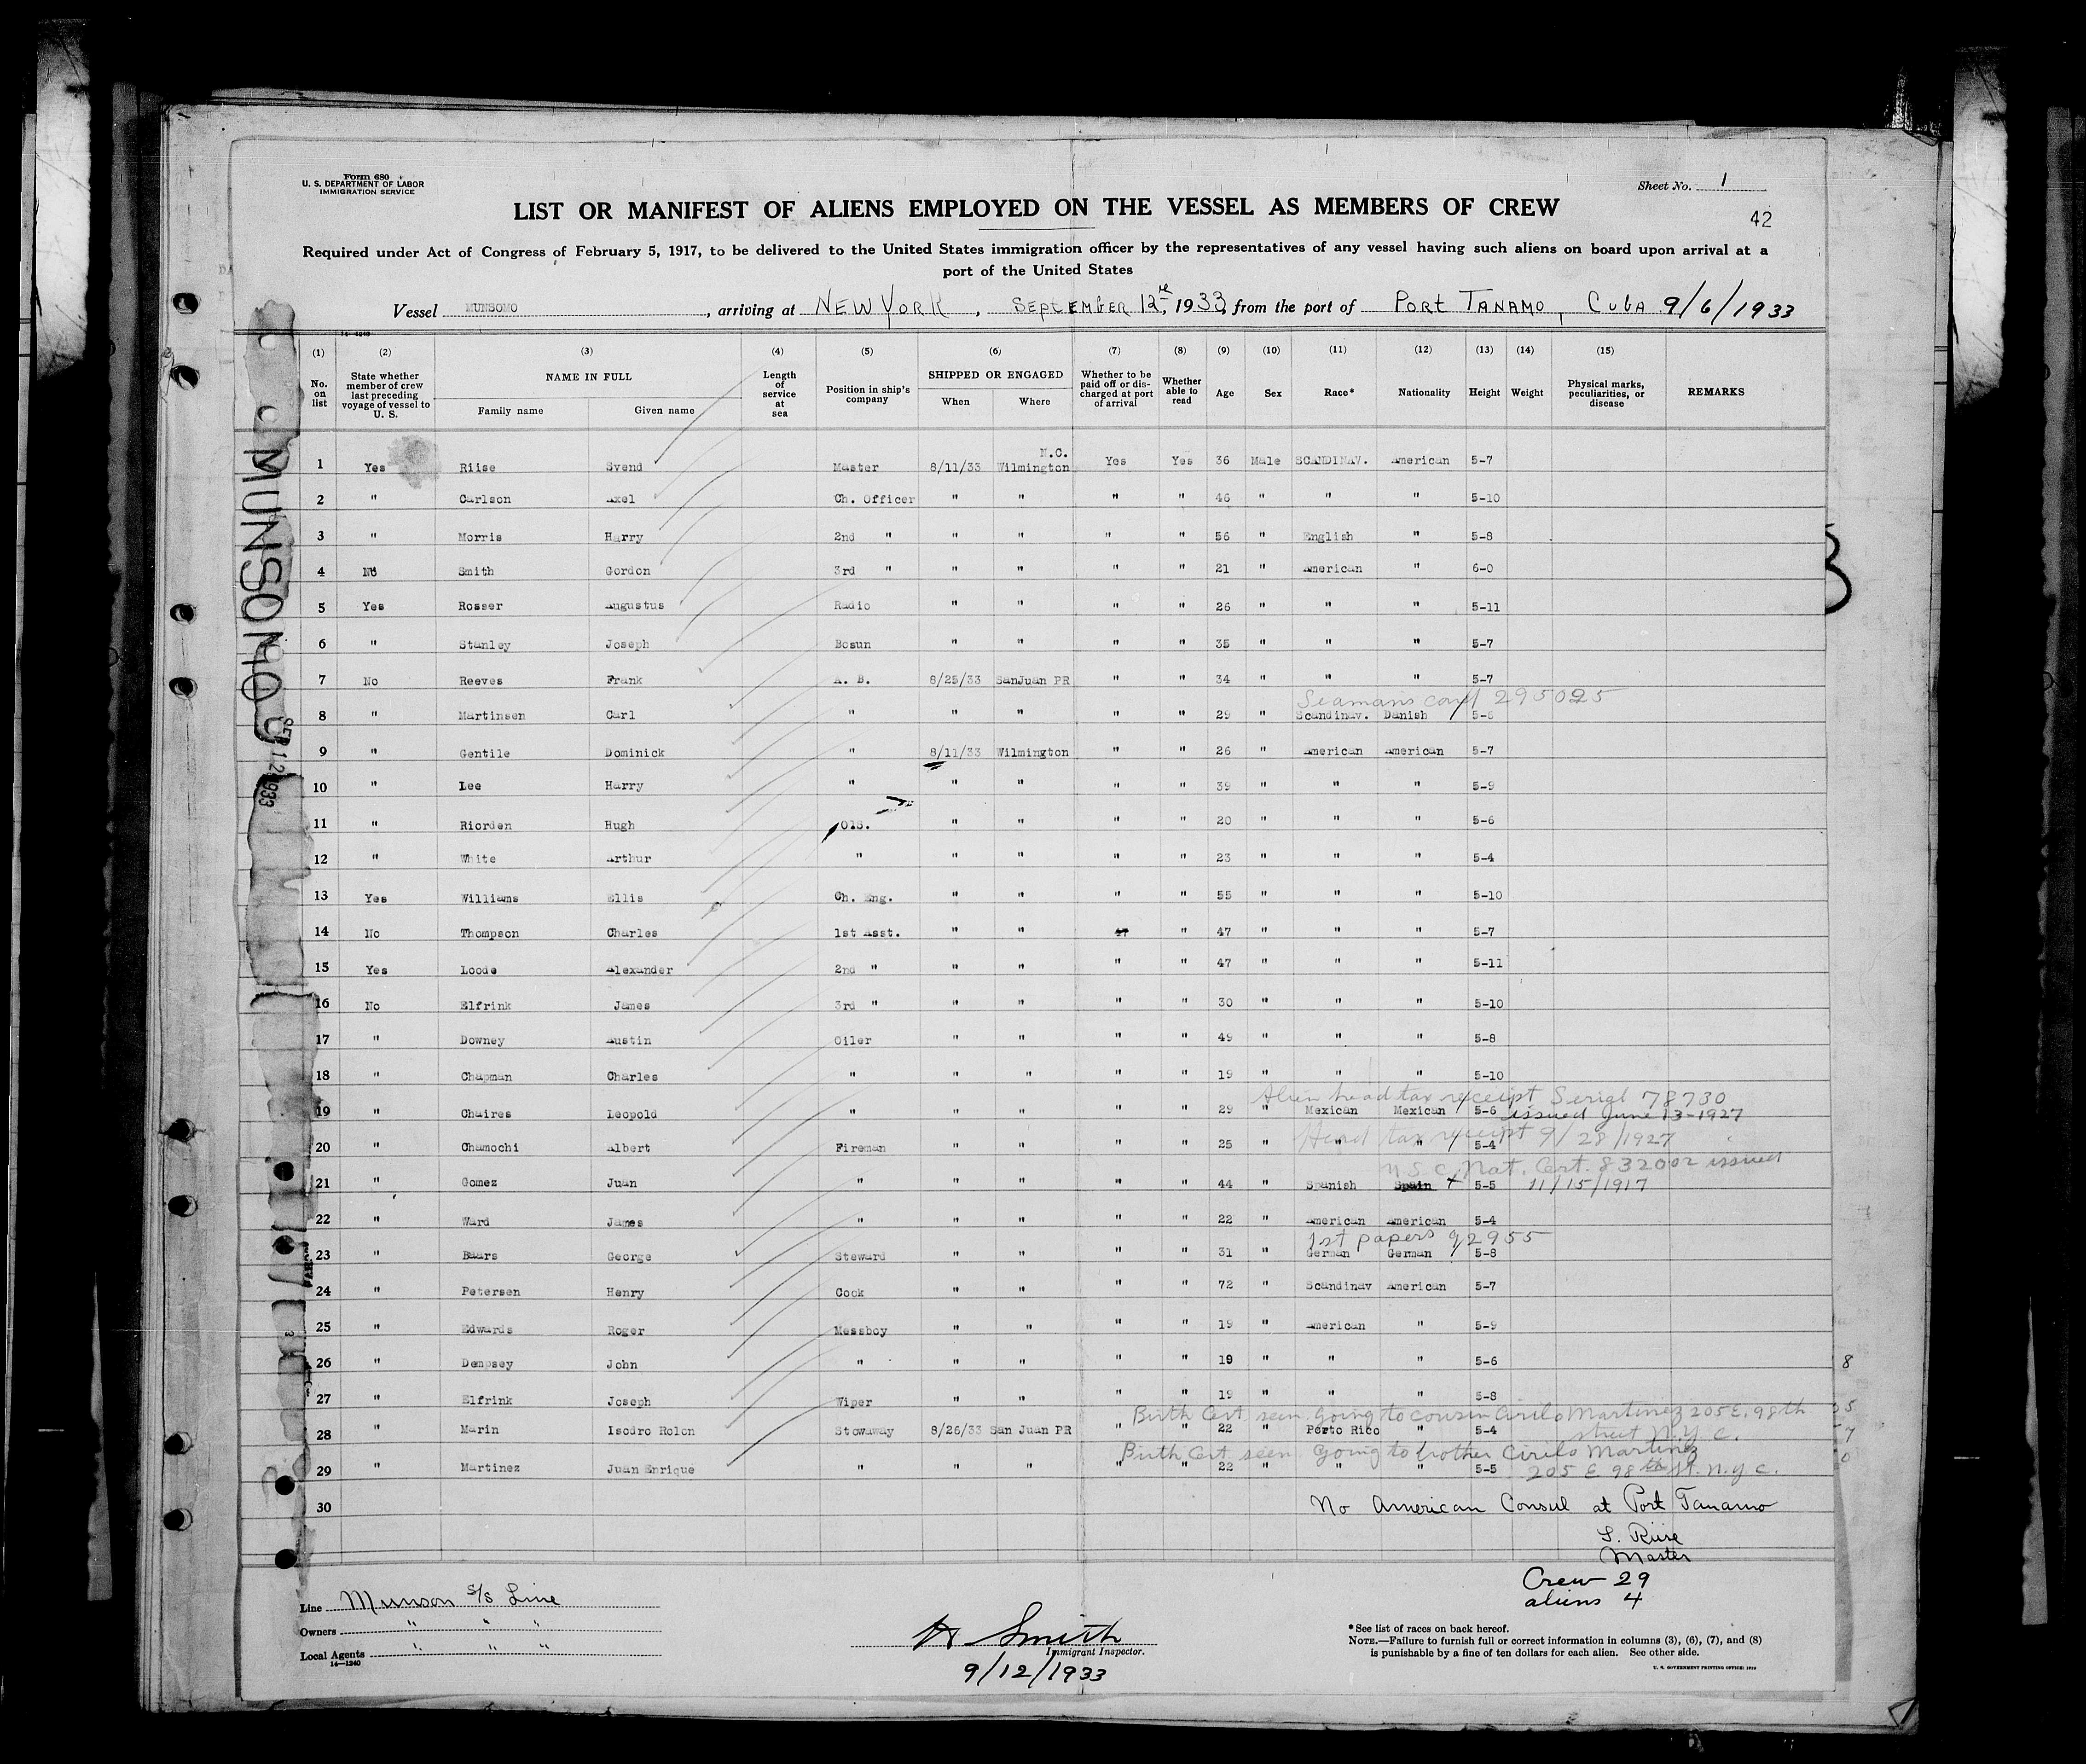 Form 680
U. S. DEPARTMENT OF LABOR
IMMIGRATION SERVICE
Sheet No. 1
42
LIST OR MANIFEST OF ALIENS EMPLOYED ON THE VESSEL AS MEMBERS OF CREW
Required under Act of Congress of February 5, 1917, to be delivered to the United States immigration officer by the representatives of any vessel having such aliens on board upon arrival at a
port of the United States
Vessel MUNSOMO, arriving at NEW YORK, SEPTEMBER 12, 1933, from the port of PORT TANAMO, CUBA 9/6/1933
14-1240
(1) (2) (3) (4) (5) (6) (7) (8) (9) (10) (11) (12) (13) (14) (15)
No. on list | State whether member of crew last preceding voyage of vessel to U. S. | NAME IN FULL Family name Given name | Length of service at sea | Position in ship's company | SHIPPED OR ENGAGED When Where | Whether to be paid off or discharged at port of arrival | Whether able to read | Age | Sex | Race* | Nationality | Height | Weight | Physical marks, peculiarities, or disease | REMARKS
N.C.
1 Yes Riise Svend Master 8/11/33 Wilmington Yes Yes 36 Male SCANDINAV. American 5-7
2 " Carlson Axel Ch. Officer " " " " 46 " " " 5-10
3 " Morris Harry 2nd " " " " " 56 " English " 5-8
4 No Smith Gordon 3rd " " " " " 21 " American " 6-0
5 Yes Rosser Augustus Radio " " " " 26 " " " 5-11
6 " Stanley Joseph Bosun " " " " 35 " " " 5-7
7 No Reeves Frank A. B. 8/25/33 SanJuan PR " " 34 " " " 5-7
Seamans card 295025
8 " Martinsen Carl " " " " " 29 " Scandinav. Danish 5-6
9 " Gentile Dominick " 8/11/33 Wilmington " " 26 " American American 5-7
10 " Lee Harry " " " " " 39 " " " 5-9
11 " Riorden Hugh OlS. " " " " 20 " " " 5-6
12 " White Arthur " " " " " 23 " " " 5-4
13 Yes Williams Ellis Ch. Eng. " " " " 55 " " " 5-10
14 No Thompson Charles 1st Asst. " " " 47 " " " 5-7
15 Yes Loode Alexander 2nd " " " " " 47 " " " 5-11
16 No Elfrink James 3rd " " " " " 30 " " " 5-10
17 " Downey Austin Oiler " " " " 49 " " " 5-8
18 " Chapman Charles " " " " " 19 " " " 5-10
Alien head tax receipt Serial 78730
19 " Chaires Leopold " " " " " 29 " Mexican Mexican 5-6 issued June 13-1927
Head tax receipt 9/28/1927
20 " Chamochi Albert Fireman " " " " 25 " " " 5-4
U.S.C. Nat. Cert. 832002 issued
21 " Gomez Juan " " " " " 44 " Spanish Spain 5-5 11/15/1917
22 " Ward James " " " " " 22 " American American 5-4
1st papers 92955
23 " Baars George Steward " " " " 31 " German German 5-8
24 " Petersen Henry Cook " " " " 72 " Scandinav American 5-7
25 " Edwards Roger Messboy " " " " 19 " American " 5-9
26 " Dempsey John " " " " " 19 " " " 5-6
27 " Elfrink Joseph Wiper " " " " 19 " " " 5-8
Birth Cert. seen. Going to cousin Cirilo Martinez 205 E. 98th
28 " Marin Isodro Rolon Stowaway 8/26/33 San Juan PR " " 22 " Porto Rico " 5-4 street N.Y.C.
Birth Cert. seen Going to brother Cirilo Martinez
29 " Martinez Juan Enrique " " " " " 22 " " " 5-5 205 E 98th St. N.Y.C.
30 No American Consul at Port Tanamo
S. Riise
Master
Crew 29
aliens 4
Line Munson S/S Line
Owners " " "
Local Agents " " "
14-1240
H Smith
Immigrant Inspector.
9/12/1933
*See list of races on back hereof.
NOTE.—Failure to furnish full or correct information in columns (3), (6), (7), and (8)
is punishable by a fine of ten dollars for each alien. See other side.
U. S. GOVERNMENT PRINTING OFFICE
MUNSOMO
SEP 12 1933